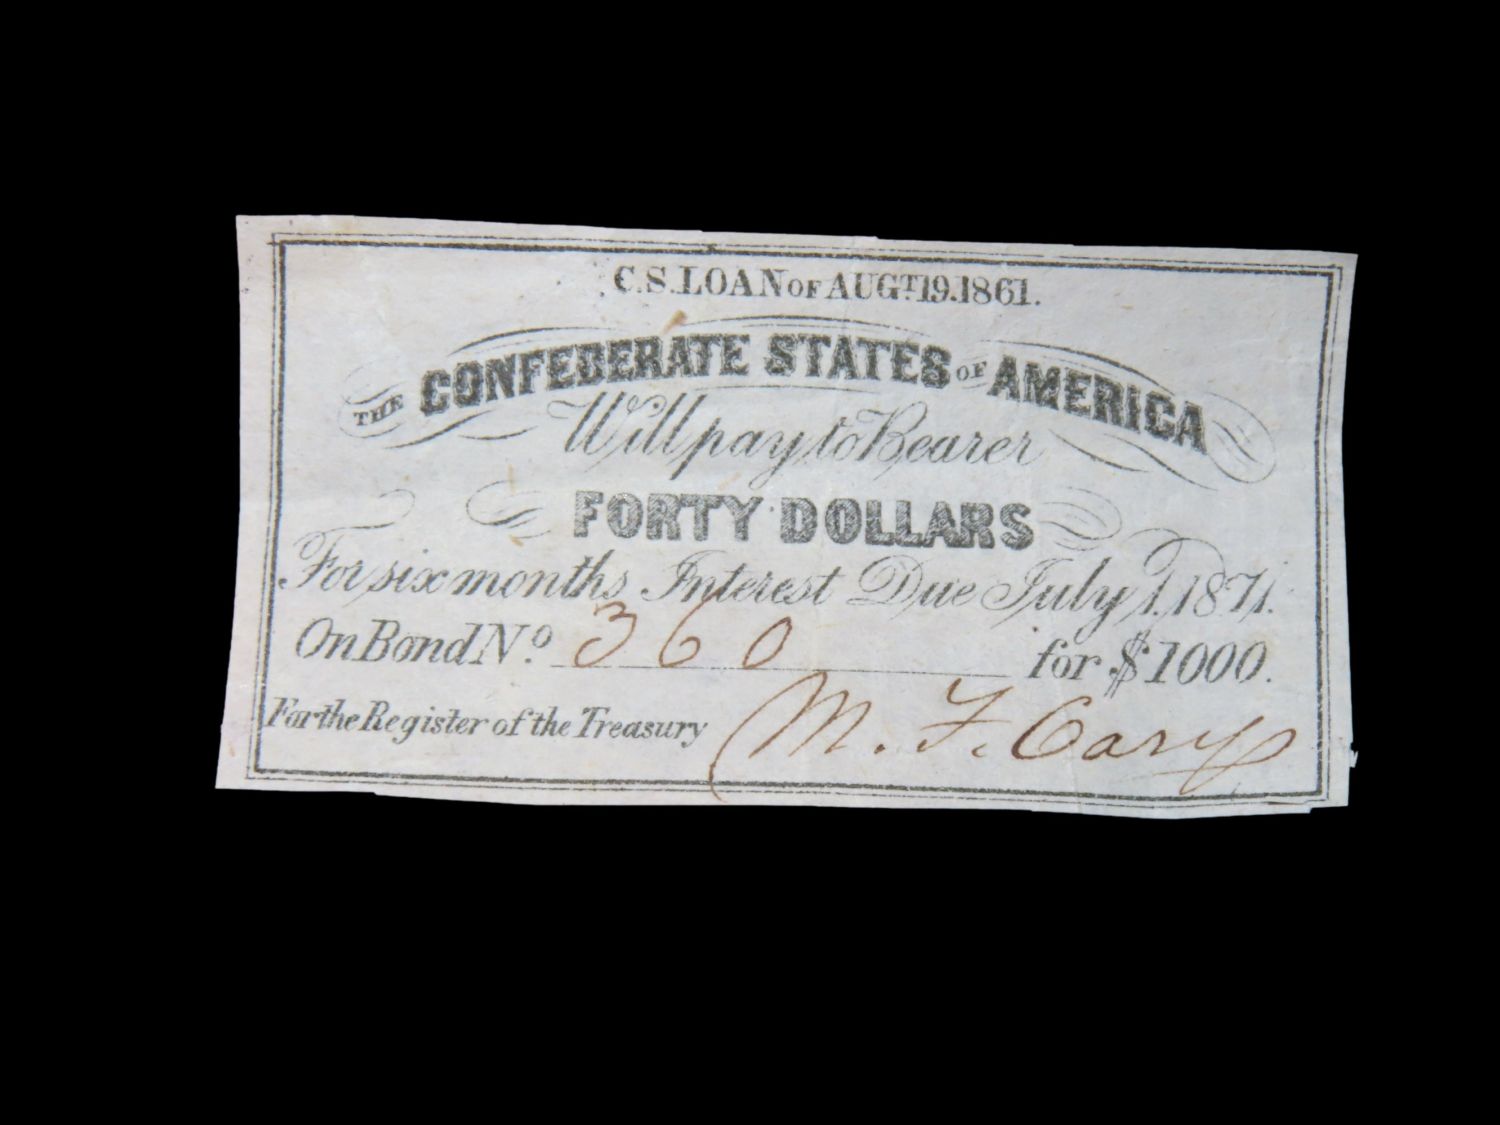 C.S. LOAN OF AUGT. 19. 1861.
THE CONFEDERATE STATES OF AMERICA
Will pay to Bearer
FORTY DOLLARS
For six months Interest Due July 1, 1871.
On Bond No. 360 for $1000.
For the Register of the Treasury M. F. Cary